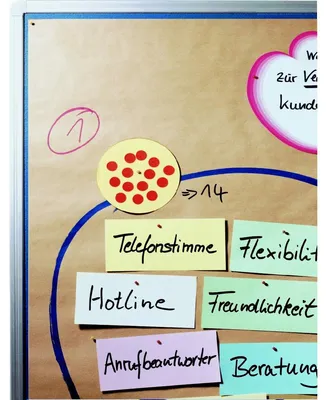 1
zür Ve
kund
⇒ 14
Telefonstimme
Flexibilit
Hotline
Freundlichkeit
Anrufbeantworter
Beratung